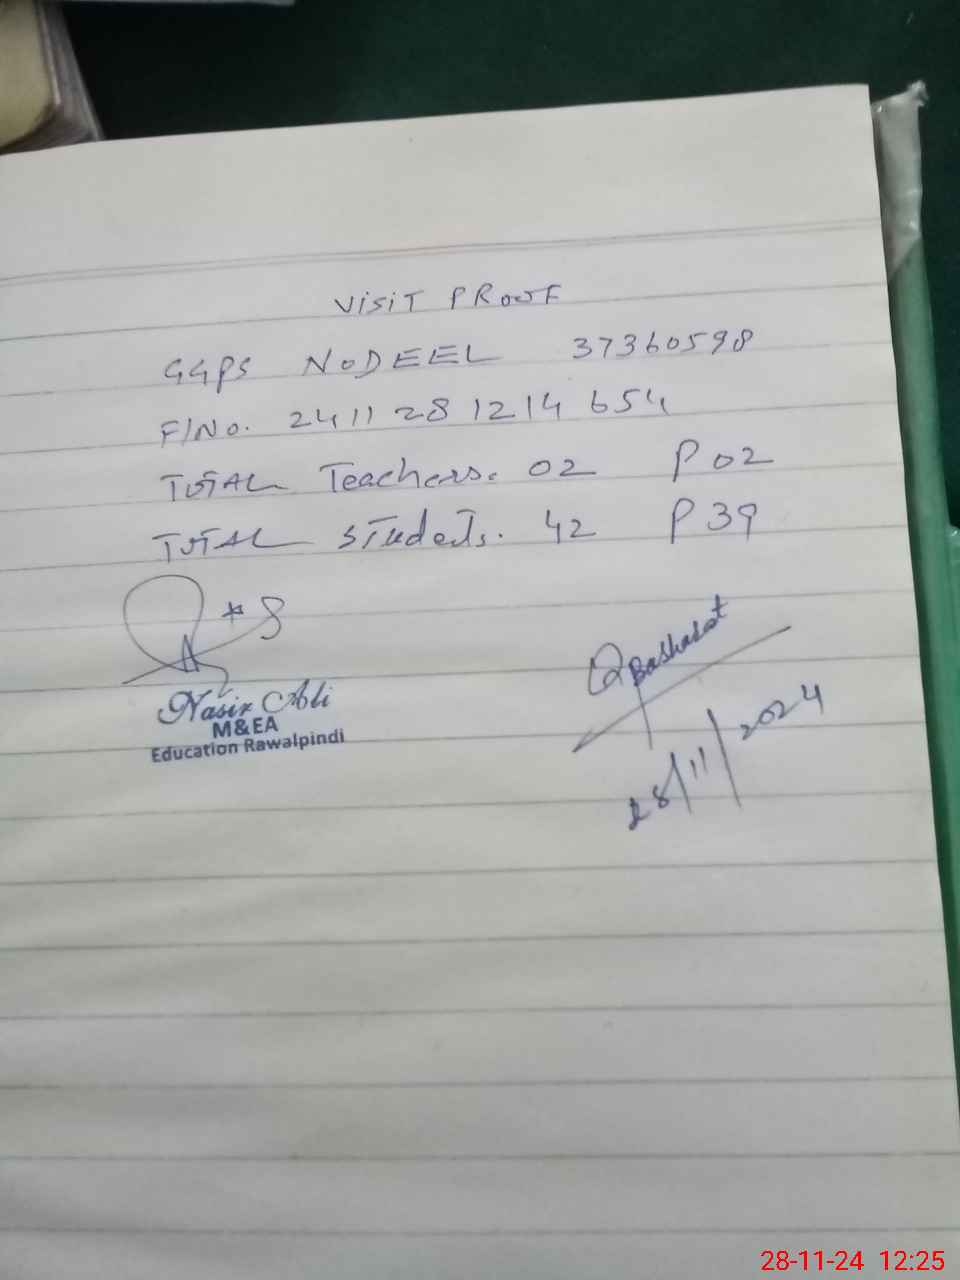 VISIT PROOF
GGPS NODEEL 37360598
F/No. 241128 1214 654
TOTAL Teachers. 02 P 02
TOTAL students. 42 P 39
Nasir Ali
M&EA
Education Rawalpindi
Bashasat
28/11/2024
28-11-24 12:25